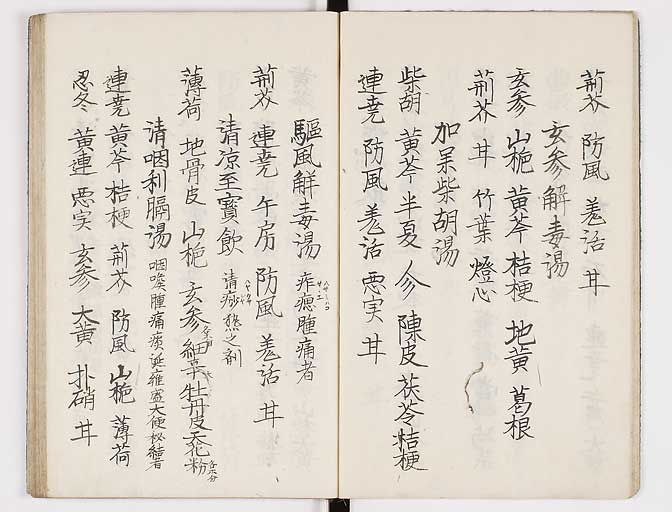 荊芥 防風 羌活 甘
玄参解毒湯
玄参 山梔 黄芩 桔梗 地黄 葛根
荊芥 甘 竹葉 燈心
加味柴胡湯
柴胡 黄芩 半夏 人参 陳皮 茯苓 桔梗
連尭 防風 羌活 悪実 甘
驅風解毒湯 痄腮腫痛者
荊芥 連尭 牛房 防風 羌活 甘
清凉至寳飲 清痧熱之剤
薄荷 地骨皮 山梔 玄参 細辛 牡丹皮 天花粉
清咽利膈湯 咽喉腫痛痰涎壅盛大便秘結者
連尭 黄芩 桔梗 荊芥 防風 山梔 薄荷
忍冬 黄連 悪実 玄参 大黄 朴硝 甘